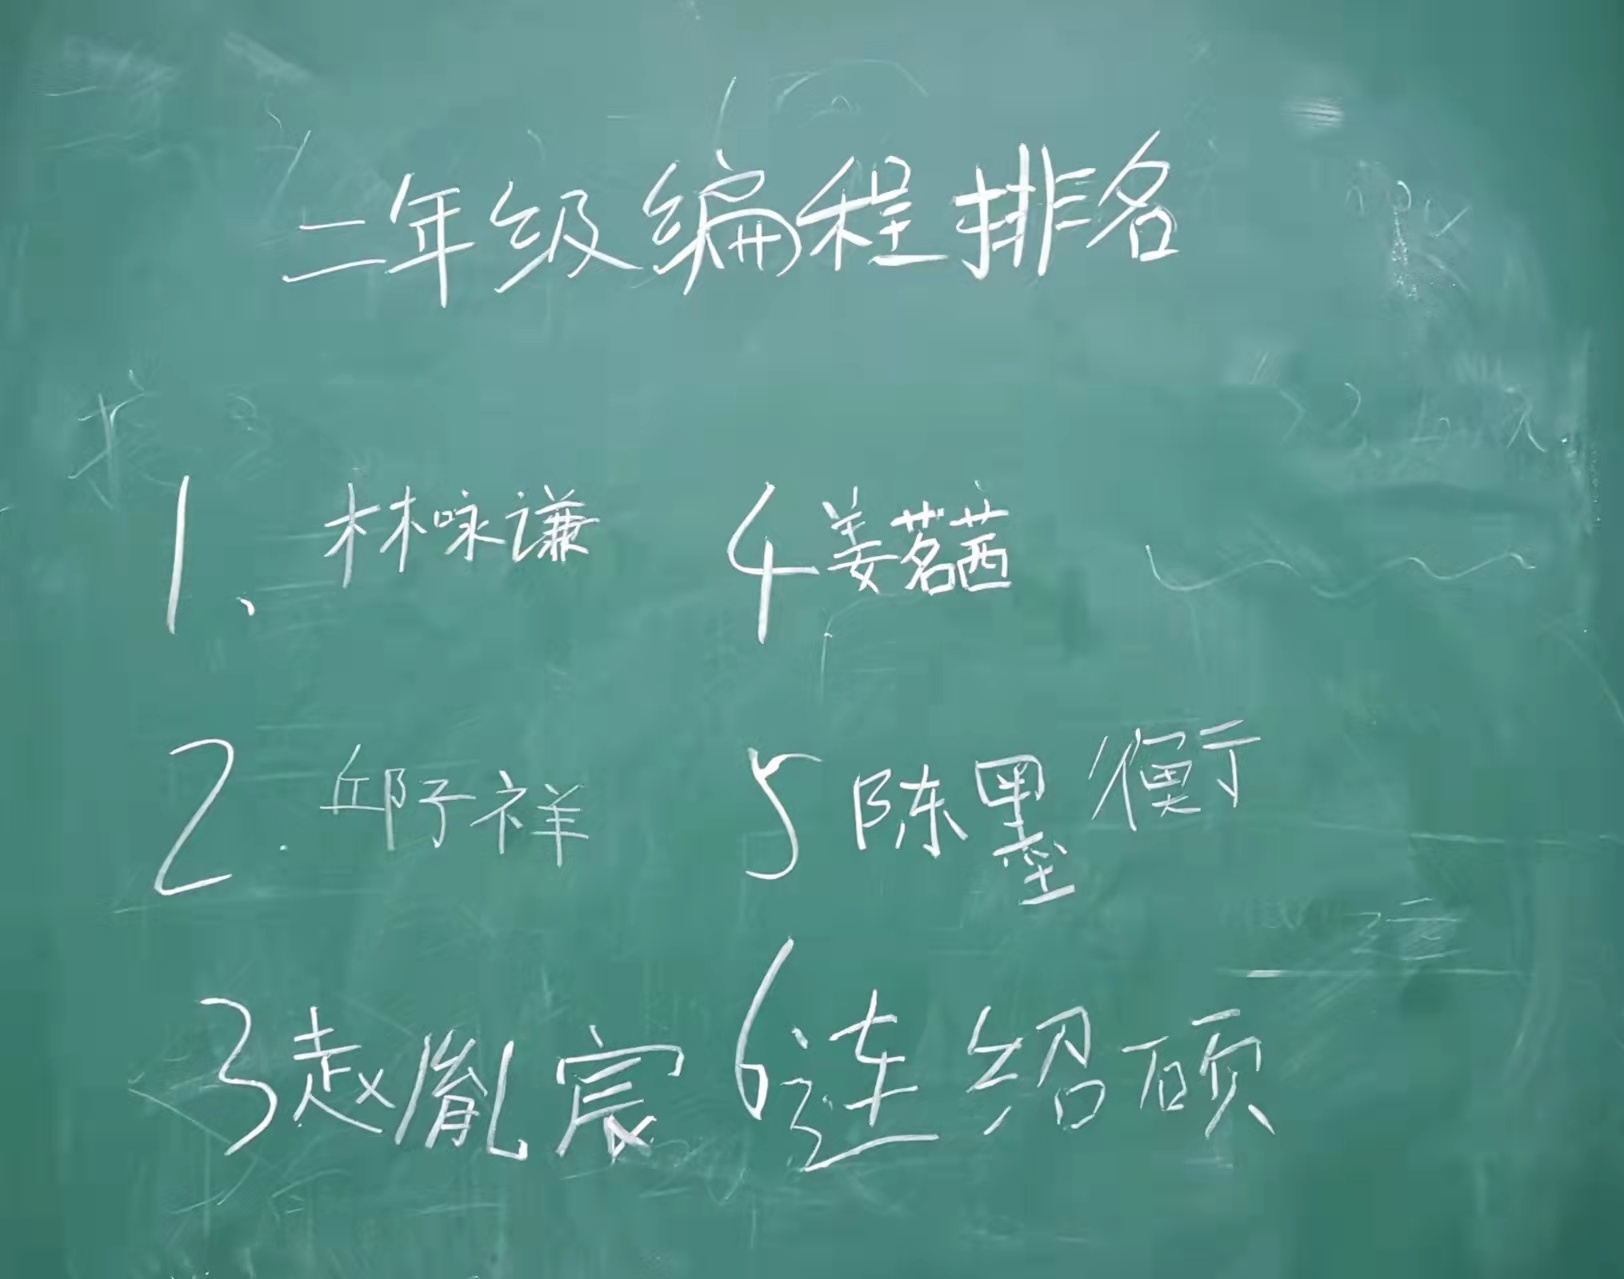 二年级编程排名
1、林咏谦
4 姜茗茜
2. 邱子祥
5 陈墨衡
3 赵胤宸
6 连绍硕